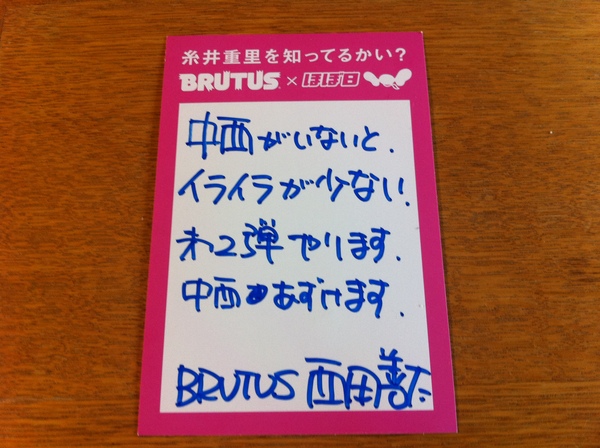 糸井重里を知ってるかい？
BRUTUS × ほぼ日
中西がいないと.
イライラが少ない.
オ2弾やります.
中西あずけます.
BRUTUS 西田善太